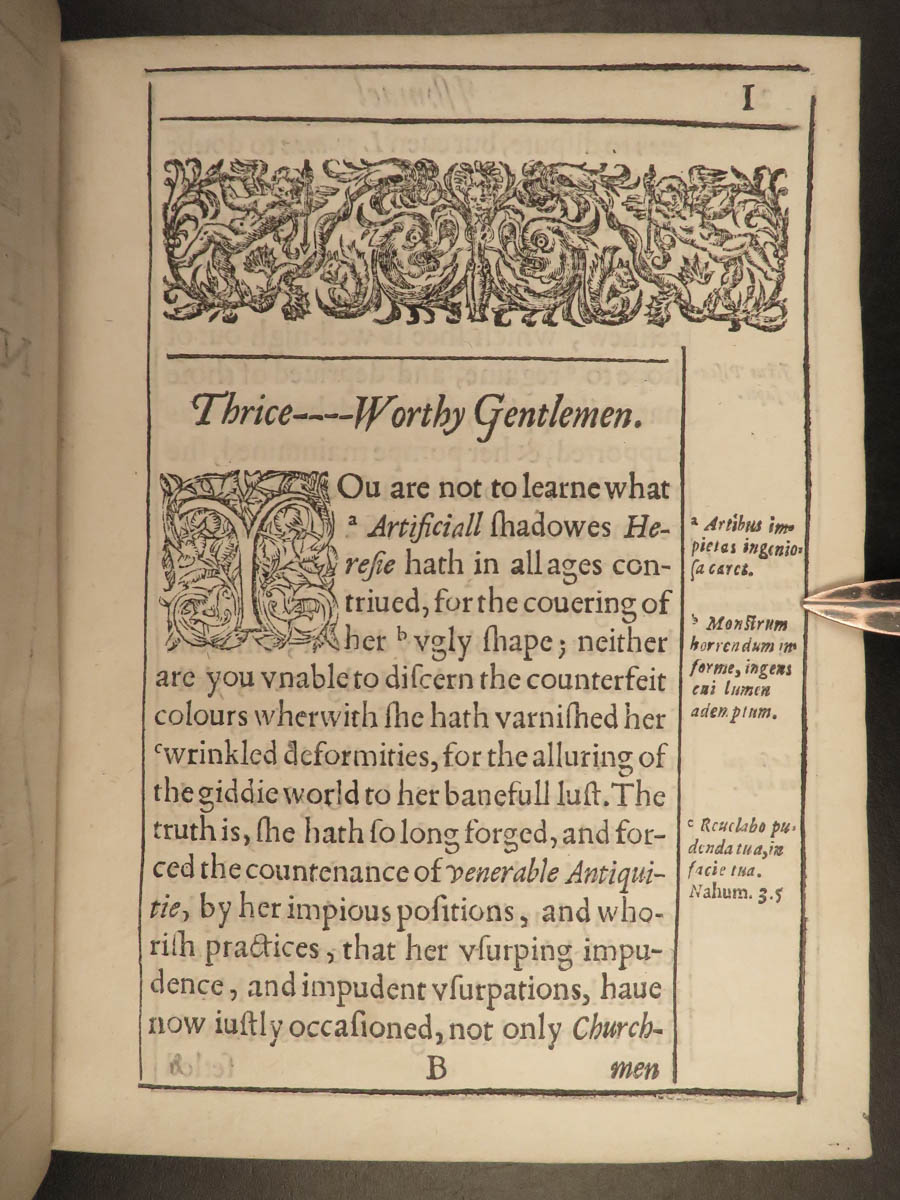 I
Thrice----Worthy Gentlemen.
YOu are not to learne what
ᵃ Artificiall ſhadowes He-
reſie hath in all ages con-
triued, for the couering of
her ᵇ vgly ſhape; neither
are you vnable to diſcern the counterfeit
colours wherwith ſhe hath varniſhed her
ᶜwrinkled deformities, for the alluring of
the giddie world to her banefull luſt. The
truth is, ſhe hath ſo long forged, and for-
ced the countenance of venerable Antiqui-
tie, by her impious poſitions, and who-
riſh practices, that her vſurping impu-
dence, and impudent vſurpations, haue
now iuſtly occaſioned, not only Church-
B
men
ᵃ Artibus im-
pietas ingenio-
ſa caret.
ᵇ Monſtrum
horrendum in
forme, ingens
cui lumen
ademptum.
ᶜ Reuelabo pu-
denda tua, in
facie tua.
Nahum. 3.5